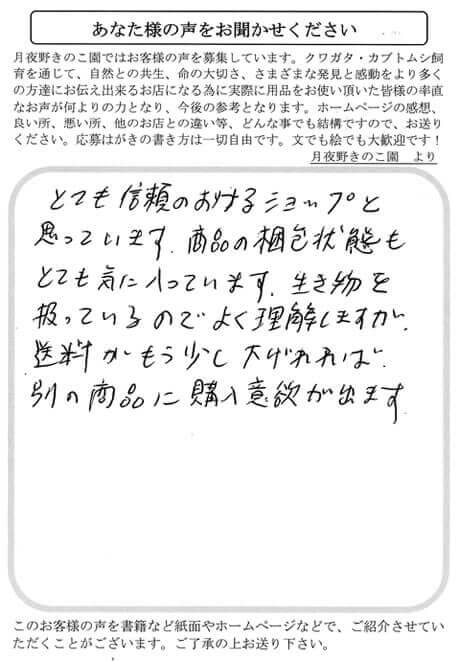 あなた様の声をお聞かせください
月夜野きのこ園ではお客様の声を募集しています。クワガタ・カブトムシ飼
育を通じて、自然との共生、命の大切さ、さまざまな発見と感動をより多く
の方達にお伝え出来るお店になる為に実際に用品をお使い頂いた皆様の率直
なお声が何よりの力となり、今後の参考となります。ホームページの感想、
良い所、悪い所、他のお店との違い等、どんな事でも結構ですので、お送り
ください。応募はがきの書き方は一切自由です。文でも絵でも大歓迎です！
月夜野きのこ園　より
とても信頼のおけるショップと
思っています。商品の梱包状態も
とても気に入っています。生き物を
扱っているのでよく理解しますが、
送料がもう少し下げれれば
別の商品に購入意欲が出ます。
このお客様の声を書籍など紙面やホームページなどで、ご紹介させてい
ただくことがございます。ご了承の上お送り下さい。